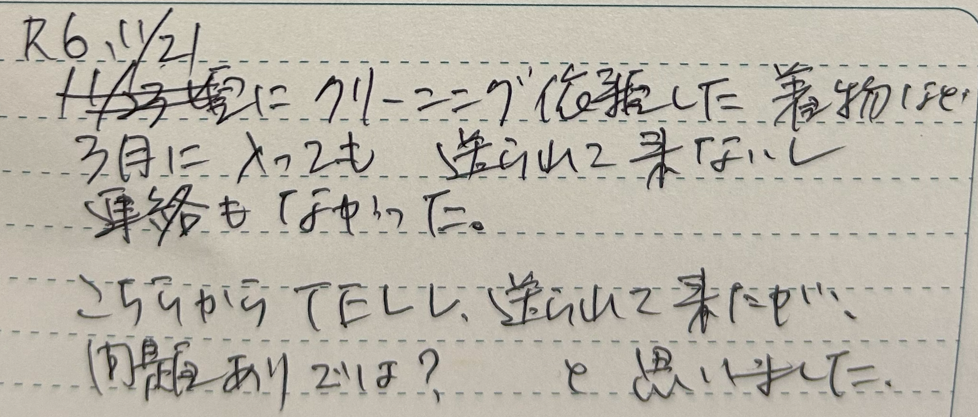 R6.11/21
にクリーニング依頼した着物など
3月に入っても 送られて来ないし
連絡もなかった。
こちらからTELし、送られて来たが、
問題ありでは? と思いました。